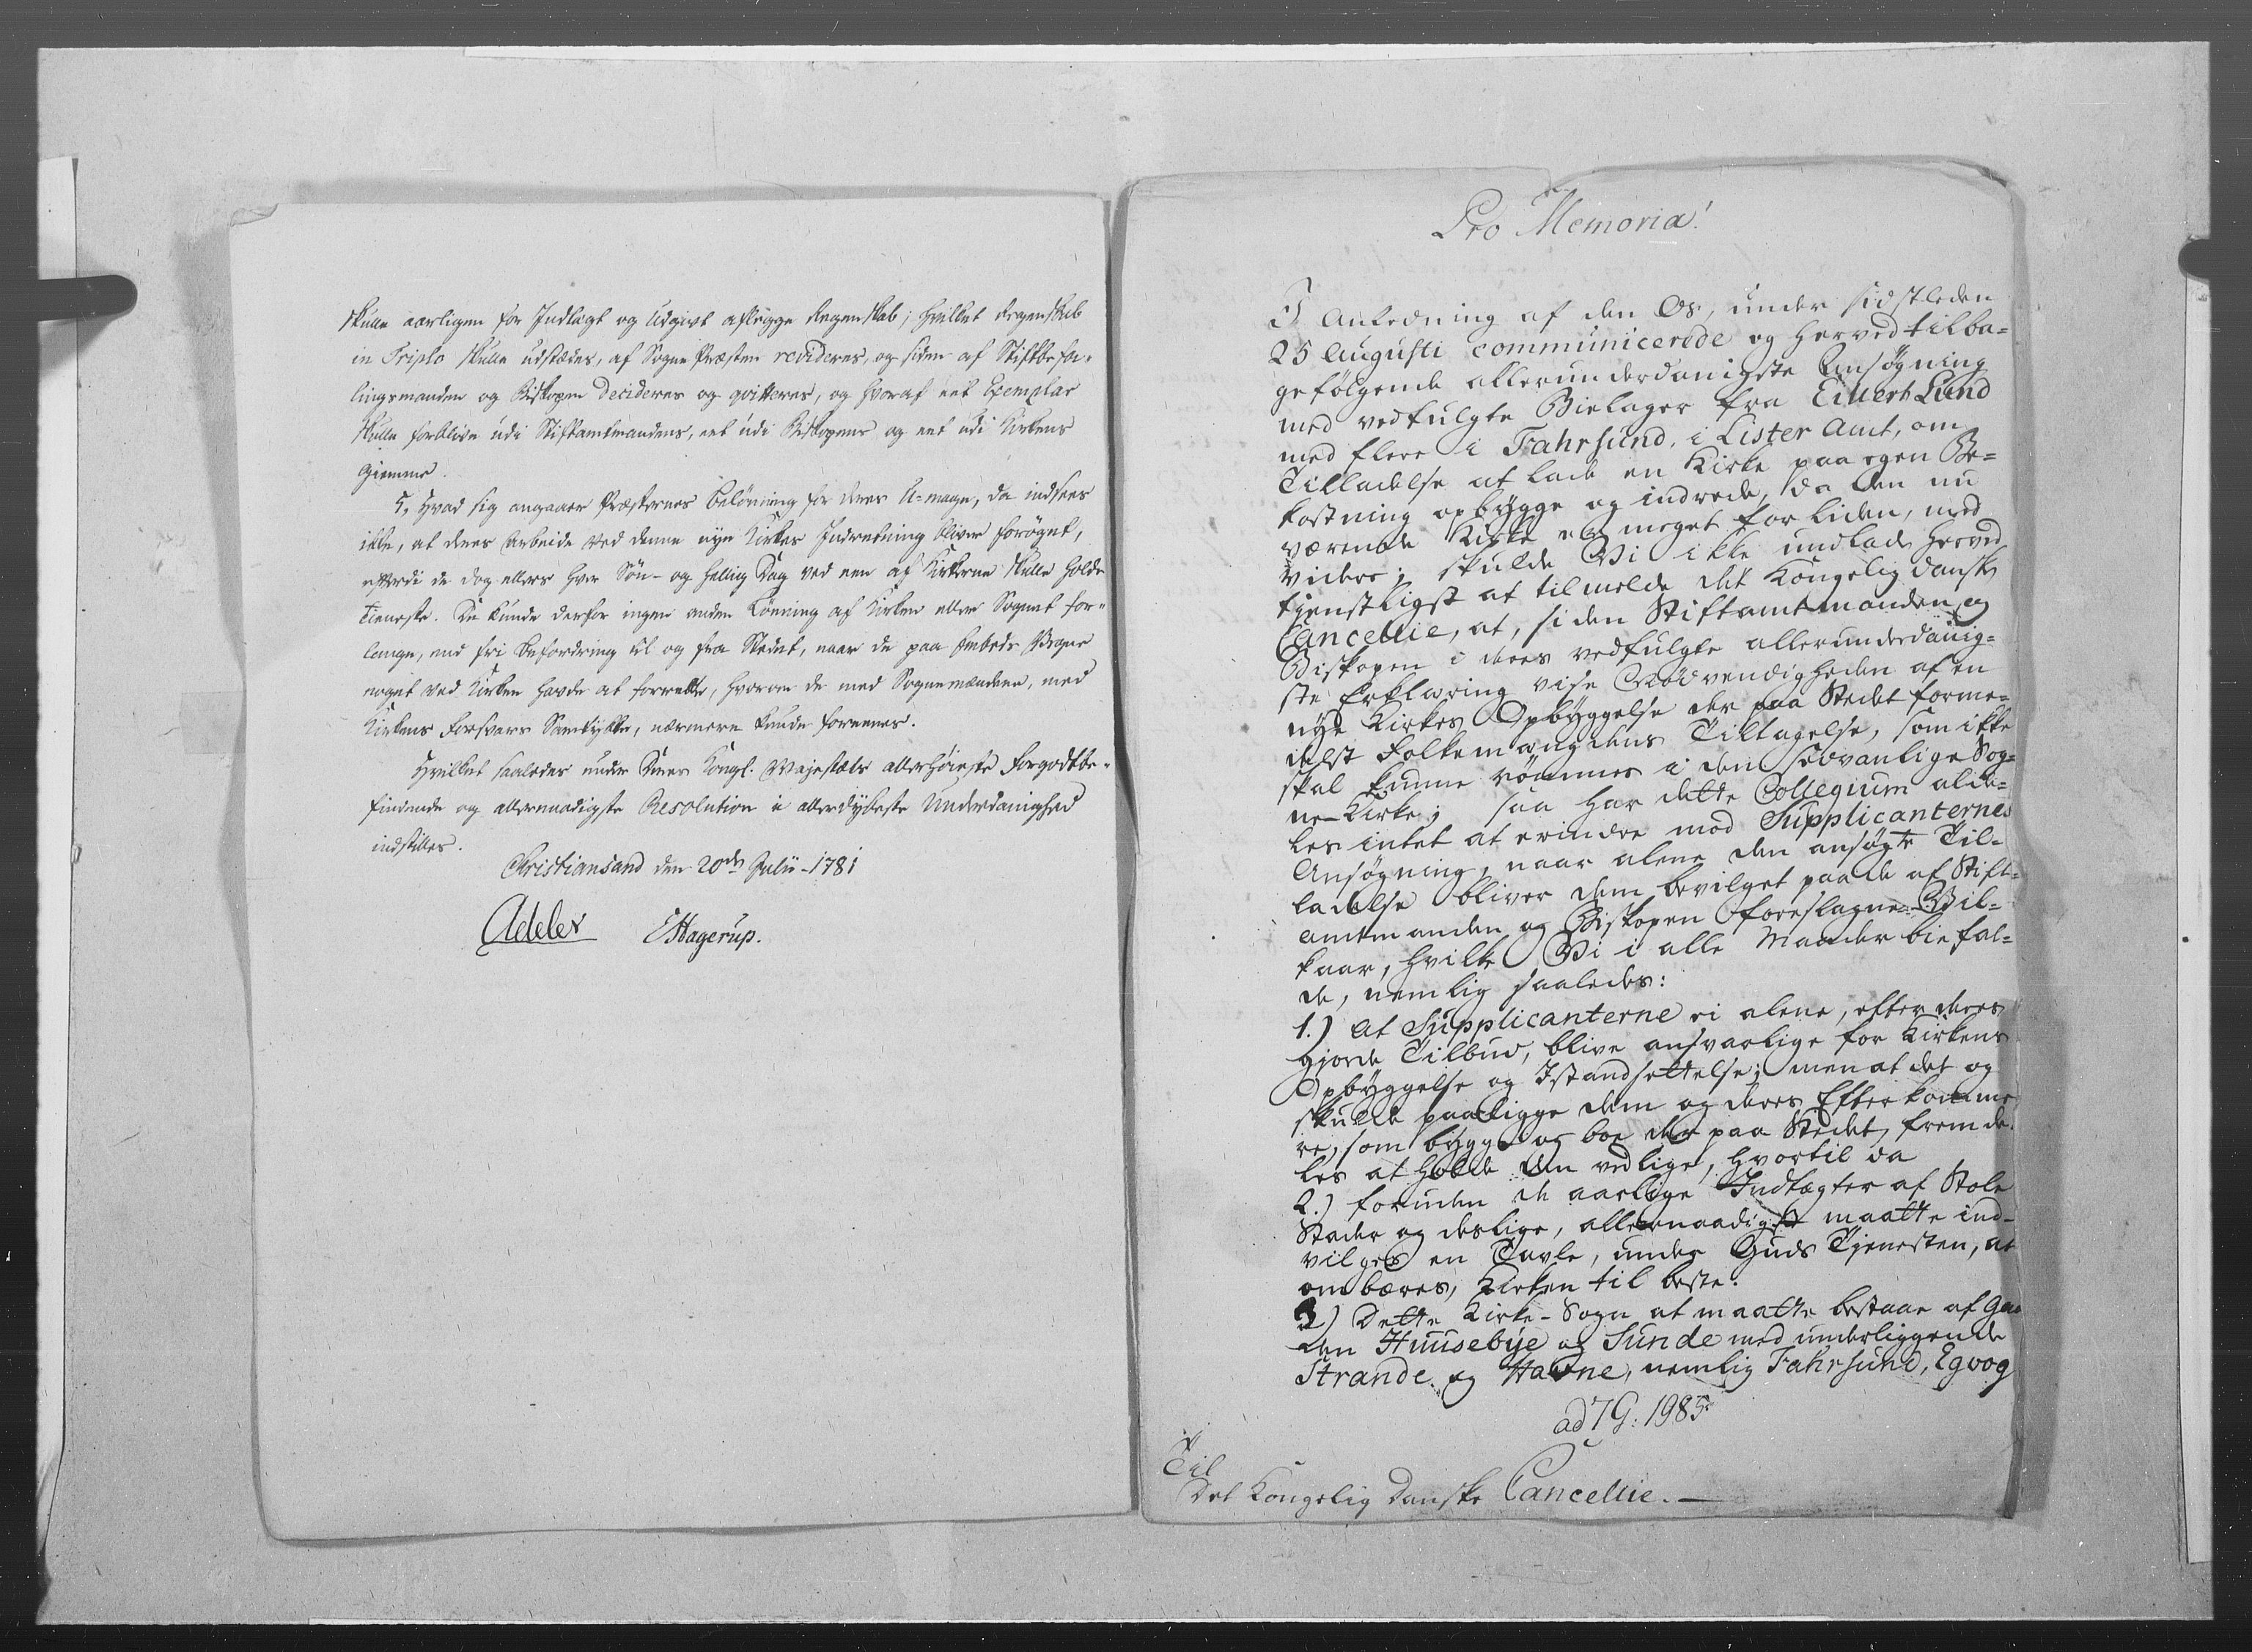 skulle aarligen for Indtægt og Udgivt aflegge Regenskab; hvilket Regenskab
in Triplo skulle udstædes, af Sogne Præsten revideres, og siden af Stiftbefa-
lingsmanden og Biskopen decideres og qvitteres, og hvoraf eet Exemplar
skulle forblive udi Stiftamtmandens, eet udi Biskopens og eet udi Kirkens
Giemme.
Hvad sig angaaer Præsternes Belönning for deres U-mage, da indsees
ikke, at deres Arbeide ved denne nye Kirkes Indretning bliver forøget,
efterdi de dog ellers hver Søn- og hellig Dag ved een af Kirkerne skulle holde
Tieneste. De kunde derfor ingen anden Lönning af Kirken eller Sognet for-
lange, end fri Befordring til og fra Stedet, naar de paa Embeds Vegne
noget ved Kirken havde at forrette, hvorom de med Sognemændene, med
Kirkens Forsvars Samtykke, nærmere kunde foreenes.
Hvilket saaledes under Deres Kongl. Majestæts allerhöieste Forgodtbe-
findende og allernaadigste Resolution i allerdybeste Underdanighed
indstilles.
Christiansand den 20de Julii 1781
Adeler EHagerup.
Pro Memoria!
I Anledning af den Os, under sidstleden
25 Augusti communicerede og herved tilba-
gefølgende allerunderdanigste Ansøgning
med vedfulgte Bielager fra Eilert Lund
med flere i Fahrsund, i Lister Amt, om
Tilladelse at lade en Kirke paa egen Be-
kostning opbygge og indrede, da den nu
værende Kirke er meget for liden, med
videre; skulde Vi ikke undlade herved
tienstligst at tilmelde det Kongelig danske
Cancellie, at, siden Stiftamtmanden og
Biskopen i deres vedfulgte allerunderdanig-
ste Erklæring vise Nødvendigheden af en
nye Kirkes Opbyggelse der paa Stedet forme-
delst Folkemængdens Tiltagelse, som ikke
skal kunne rømmes i den sædvanlige Sog-
ne-Kirke; saa har dette Collegium alde-
les intet at erindre mod Supplicanternes
Ansøgning, naar alene den ansøgte Til-
ladelse bliver dem bevilget paa de af Stift-
amtmanden og Biskopen foreslagne Vil-
kaar, hvilke Vi i alle Maader biefal-
de, nemlig saaledes:
1.) At Supplicanterne ei alene, efter deres
gjorde Tilbud, blive ansvarlige for Kirkens
Opbyggelse og Istandsettelse; men at det og
skulde paaligge dem og deres Efterkomme
re, som bygge og boe der paa Stedet, fremde-
les at holde den vedlige, hvortil da
2.) foruden de aarlige Indtægter af Stole
Stader og deslige, allernaadigst maatte ind-
vilges en Tavle, under Guds Tjenesten, at
ombæres, Kirken til beste.
3) Dette Kirke-Sogn at maatte bestaae af Gaar
den Huusebye og Sunde med underliggende
Strande og Havne, nemlig Fahrsund, Egvog
ad 7 G: 1985
Til
Det Kongelig Danske Cancellie.